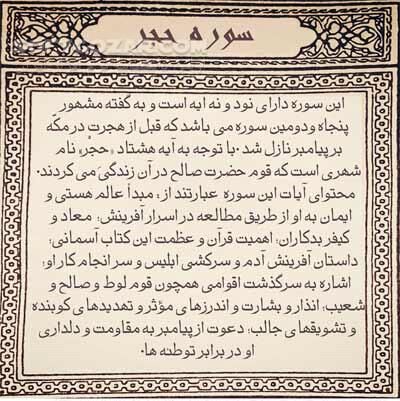 سوره حجر
این سوره دارای نود و نه آیه است و به گفته مشهور
پنجاه و دومین سوره می باشد که قبل از هجرت در مکّه
بر پیامبر نازل شد. با توجه به آیه هشتاد «حجر» نام
شهری است که قوم حضرت صالح در آن زندگی می کردند.
محتوای آیات این سوره عبارتند از؛ مبدأ عالم هستی و
ایمان به او از طریق مطالعه در اسرار آفرینش؛ معاد و
کیفر بدکاران؛ اهمیت قرآن و عظمت این کتاب آسمانی؛
داستان آفرینش آدم و سرکشی ابلیس و سرانجام کار او؛
اشاره به سرگذشت اقوامی همچون قوم لوط و صالح و
شعیب؛ انذار و بشارت و اندرزهای مؤثر و تهدیدهای کوبنده
و تشویقهای جالب؛ دعوت از پیامبر به مقاومت و دلداری
او در برابر توطئه ها.